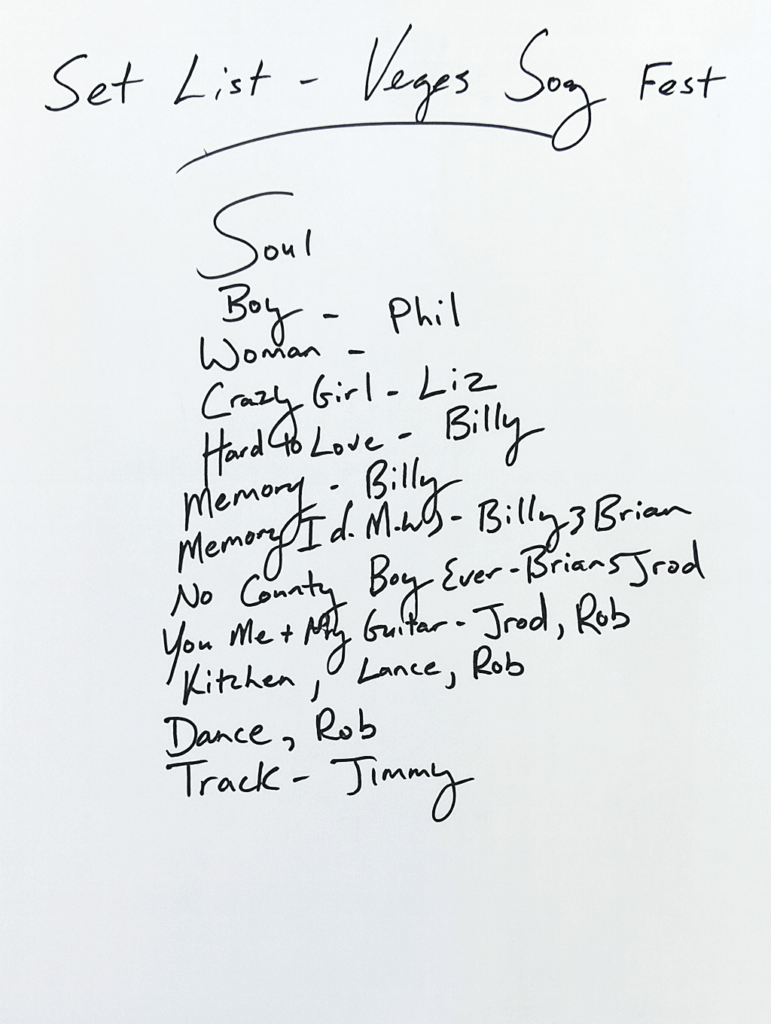 Set List - Veges Song Fest
Soul
Boy - Phil
Woman -
Crazy Girl - Liz
Hard to Love - Billy
Memory - Billy
Memory I d. M.w) - Billy & Brian
No County Boy Ever - Brian & Jrod
You Me + My Guitar - Jrod, Rob
Kitchen, Lance, Rob
Dance, Rob
Track - Jimmy